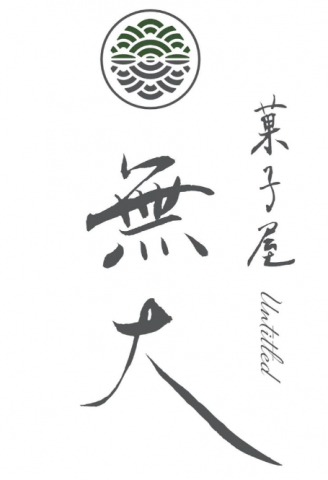 菓子屋 Untitled
無大